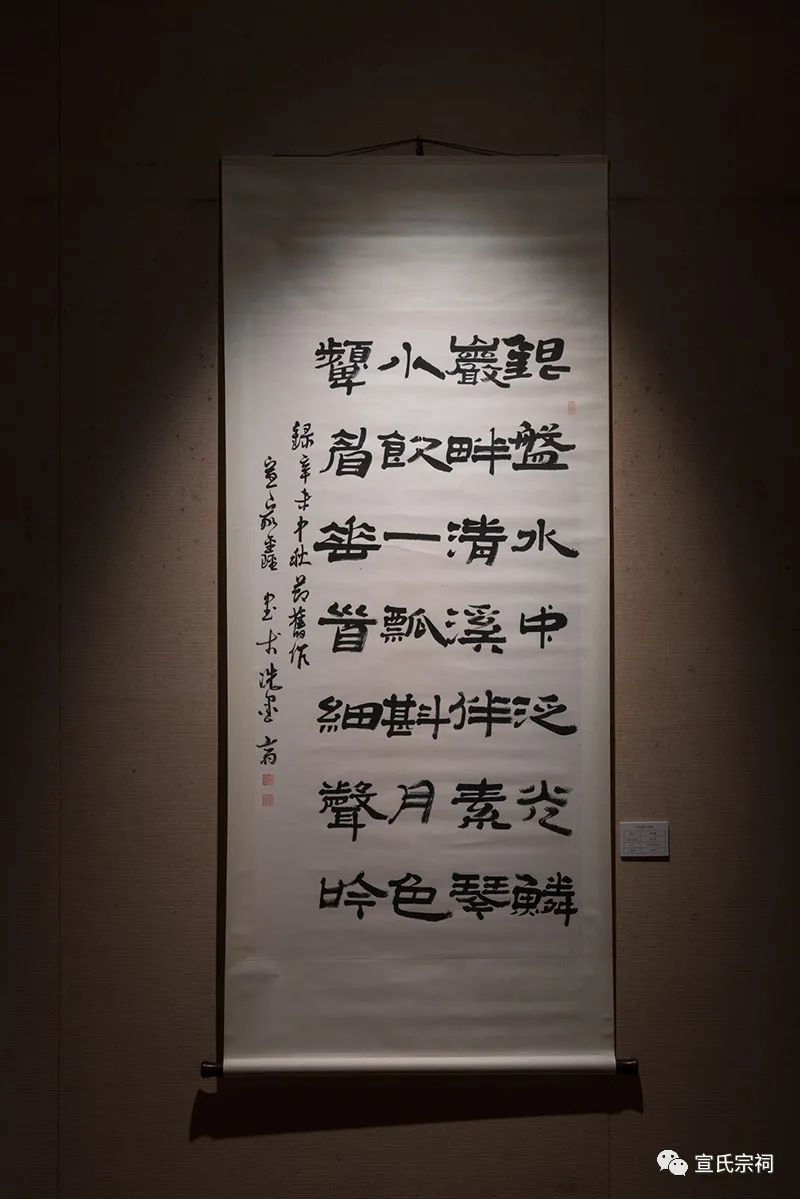 銀盤水中泛光鱗
巖畔清溪伴素琴
小飲一瓢斟月色
顰眉華首細聲吟
錄辛未中秋節舊作
宣家鑫 書於洗墨齋
宣氏宗祠